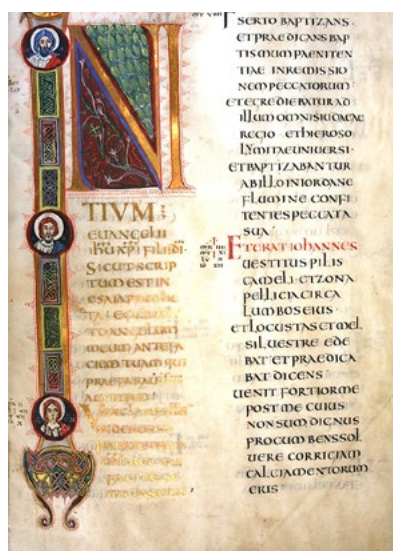 IN
ITIUM
EUANGELII
IHU XPI FILII DI
SICUT SCRIP
TUM EST IN
ESAIA
TO ANGELUM
MEUM ANTE FA
CIEM TUAM QUI
PRAEPARABIT
SERTO BAPTIZANS
ET PRAEDICANS BAP
TISMUM PAENITEN
TIAE IN REMISSIO
NEM PECCATORUM
ET EGREDIEBATUR AD
ILLUM OMNIS IUDAEAE
REGIO ET HIEROSO
LYMITAE UNIVERSI
ET BAPTIZABANTUR
AB ILLO IN IORDANE
FLUMINE CONFI
TENTES PECCATA
SUA
ET ERAT IOHANNES
UESTITUS PILIS
CAMELI ET ZONA
PELLICIA CIRCA
LUMBOS EIUS
ET LOCUSTAS ET MEL
SILUESTRE EDE
BAT ET PRAEDICA
BAT DICENS
UENIT FORTIOR ME
POST ME CUIUS
NON SUM DIGNUS
PROCUMBENS SOL
UERE CORRIGIAM
CALCIAMENTORUM
EIUS